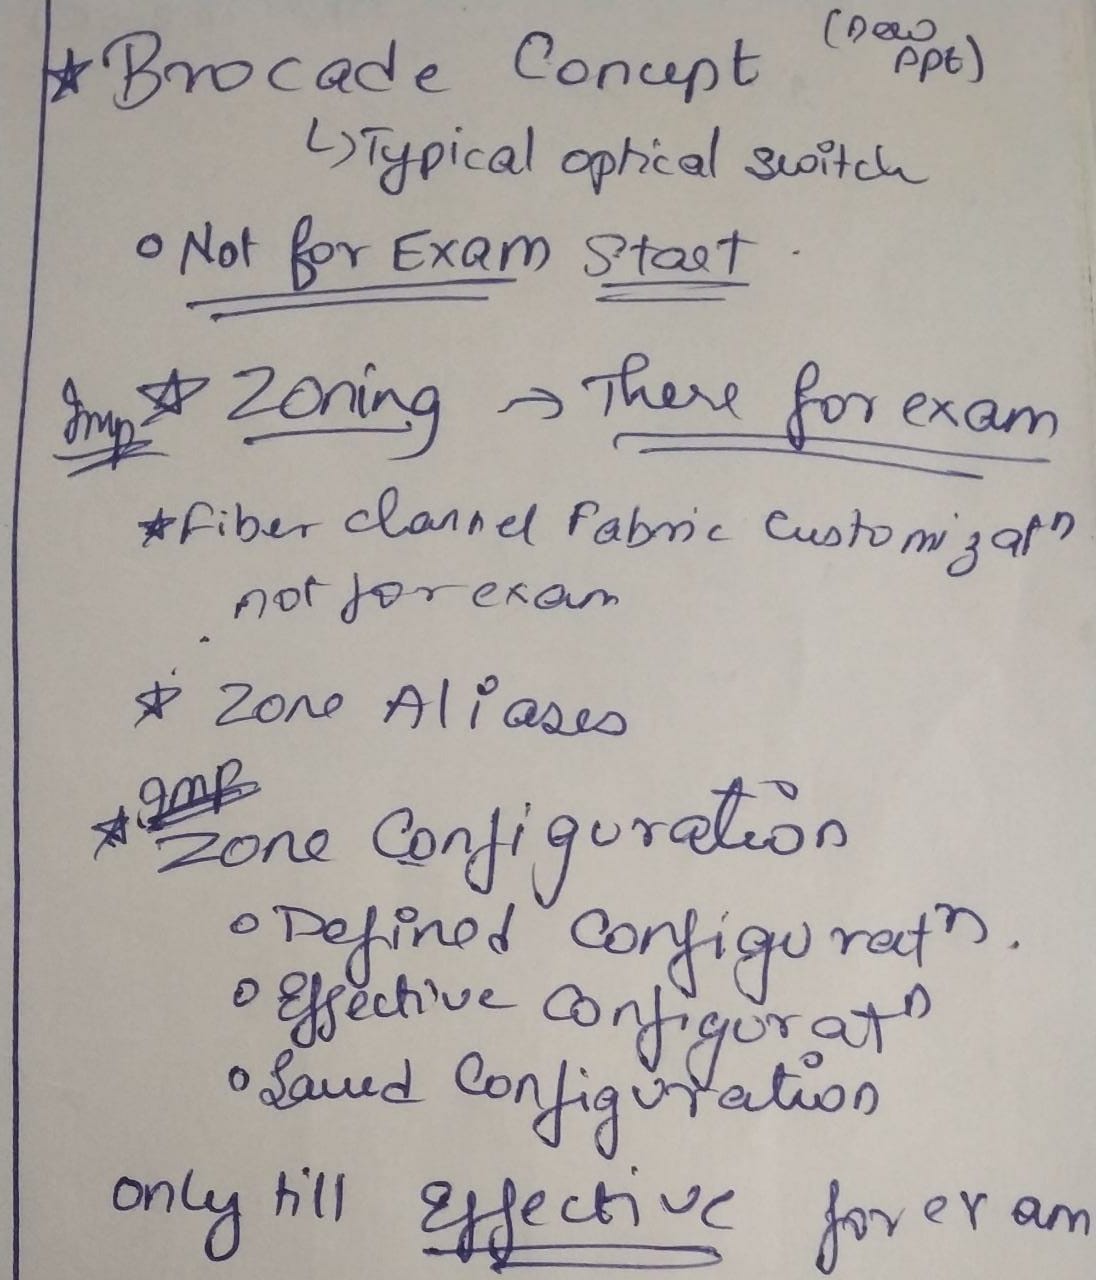 Brocade Concept (New ppt)
↳ Typical optical switch
Not for Exam Start.
Imp Zoning → There for exam
Fiber channel Fabric Customizatn
not for exam
Zone Aliases
Imp
Zone Configuration
Defined Configuratn.
Effective Configuratn
Saved Configuration
only till Effective for exam